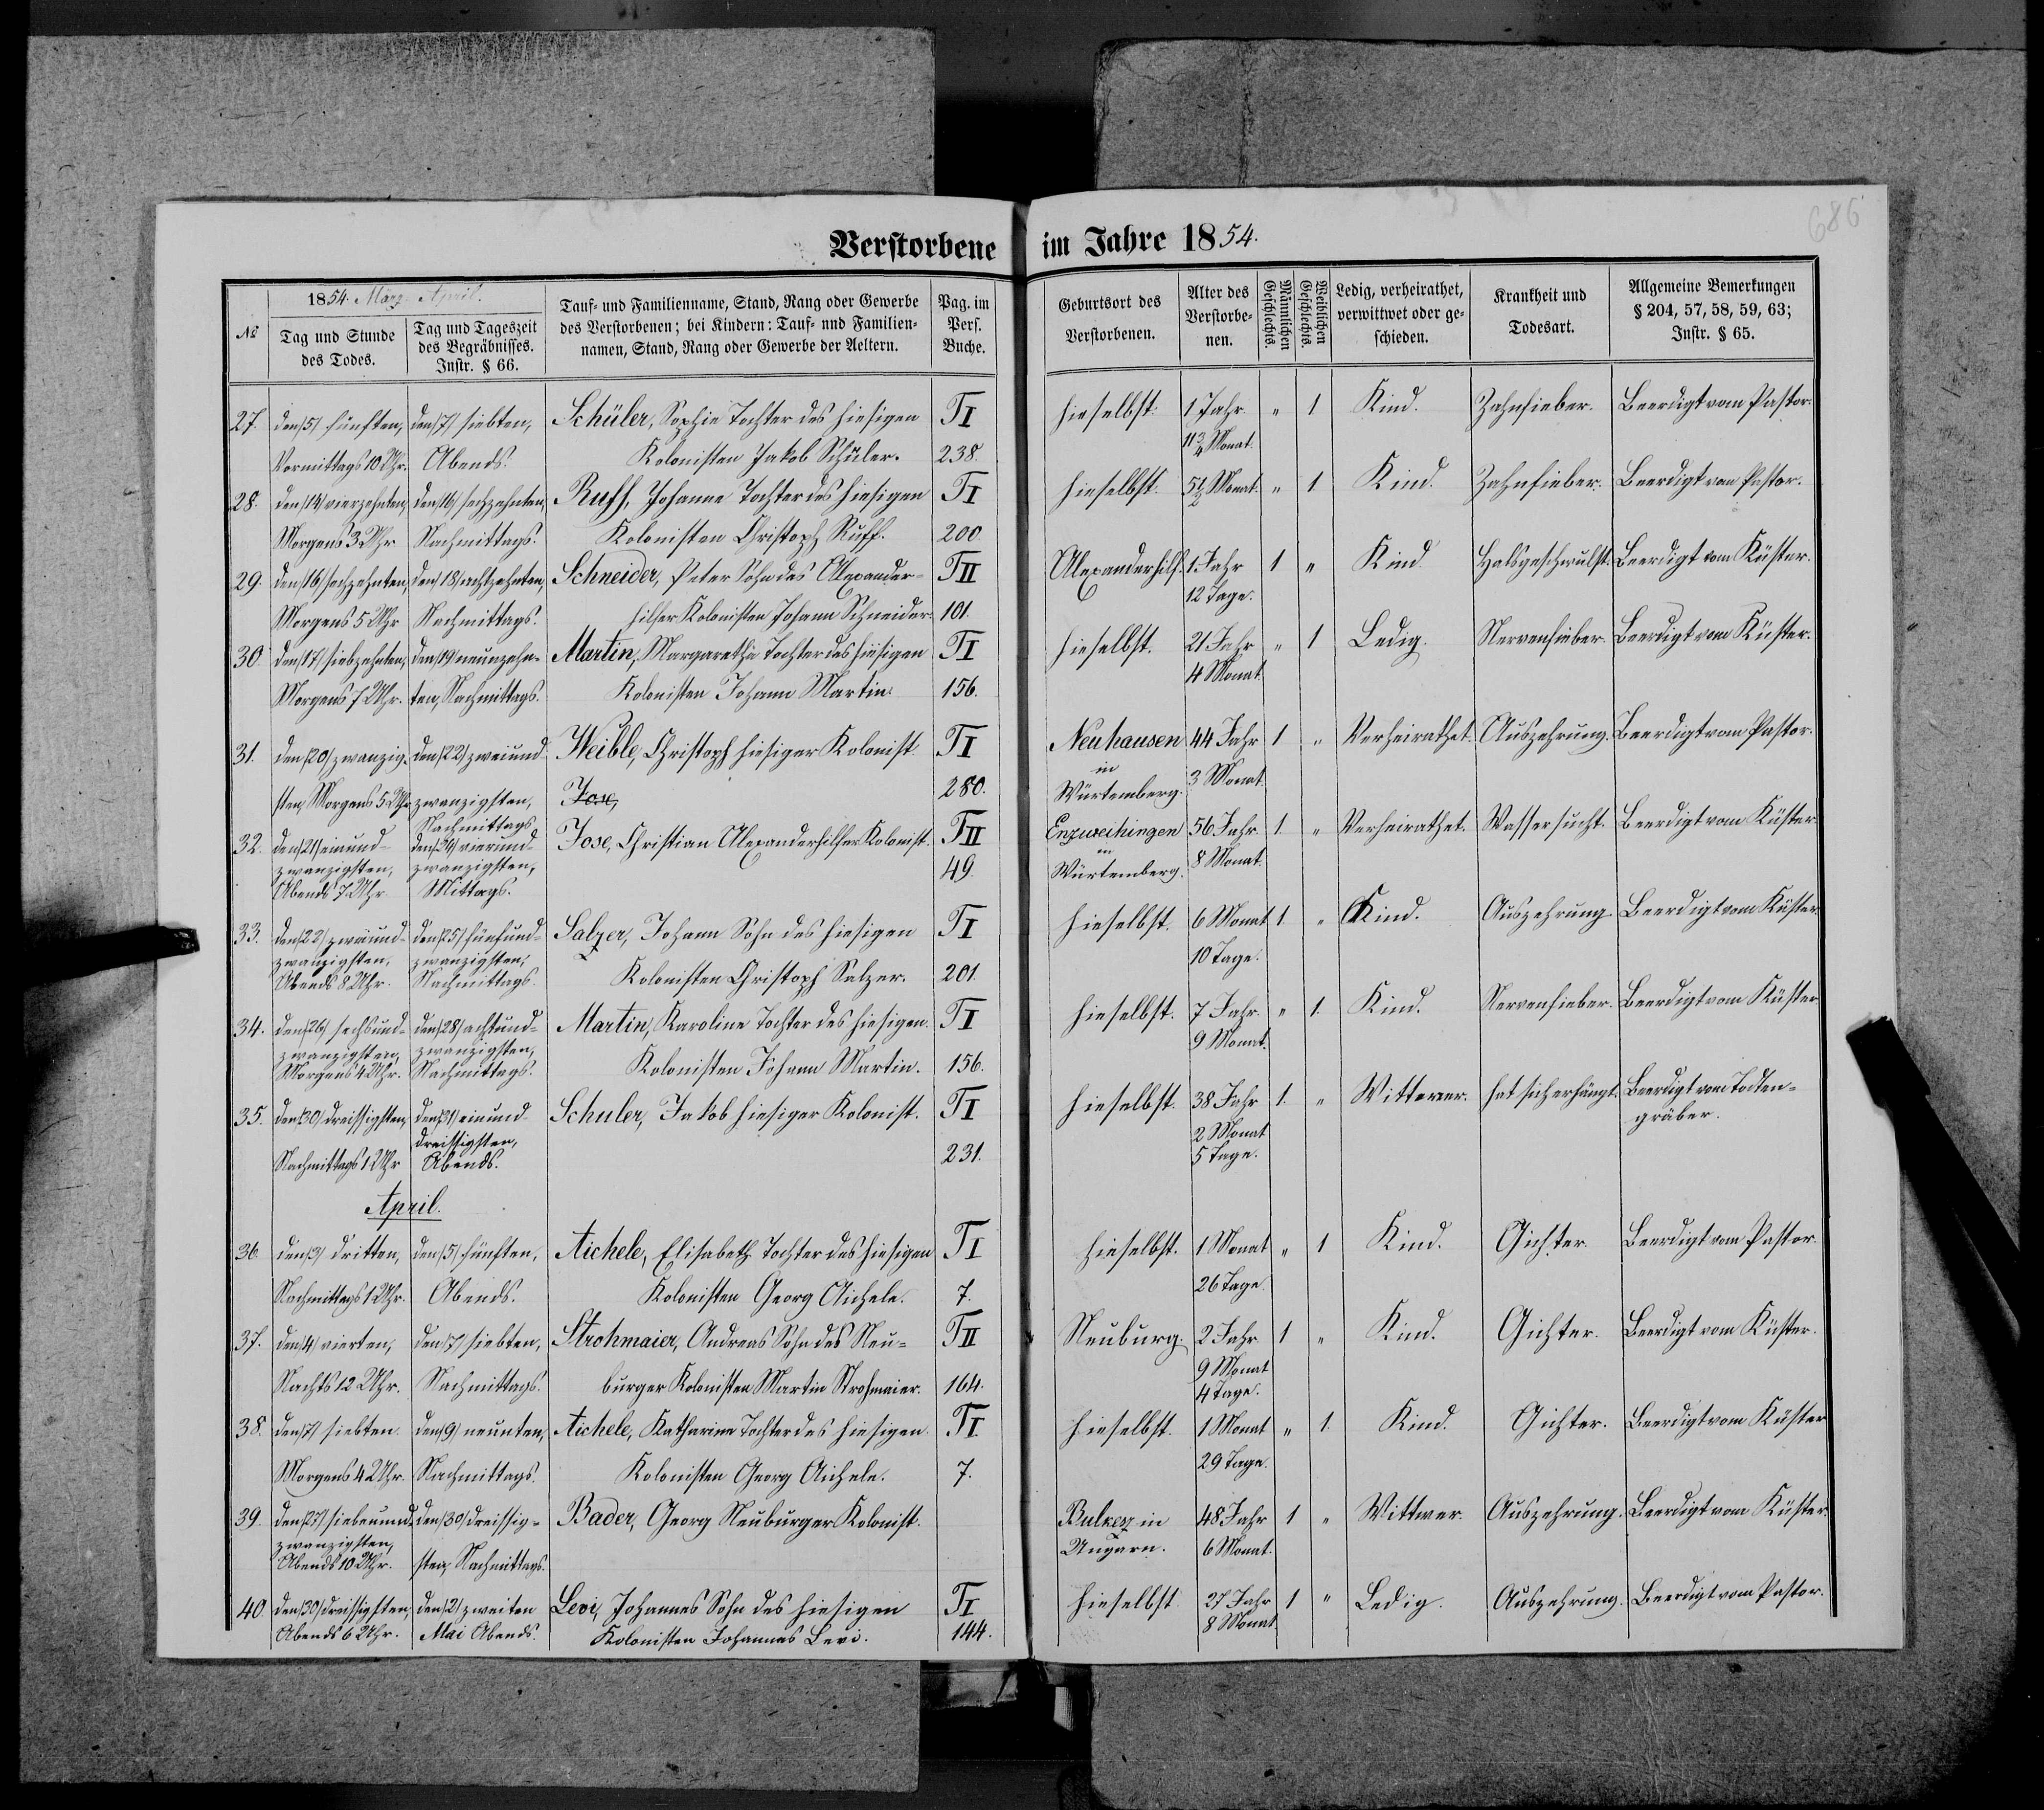 Verstorbene im Jahre 1854.
686
1854. März April.
№
Tag und Stunde des Todes.
Tag und Tageszeit des Begräbnisses. Instr. § 66.
Tauf- und Familienname, Stand, Rang oder Gewerbe des Verstorbenen; bei Kindern: Tauf- und Familien-namen, Stand, Rang oder Gewerbe der Aeltern.
Pag. im Pers. Buche.
Geburtsort des Verstorbenen.
Alter des Verstorbe-nen.
Männlichen Geschlechts.
Weiblichen Geschlechts.
Ledig, verheirathet, verwittwet oder ge-schieden.
Krankheit und Todesart.
Allgemeine Bemerkungen § 204, 57, 58, 59, 63; Instr. § 65.
27. den /5/ fünften, den /7/ siebten, Schüler, Sophie Tochter des hiesigen TI hieselbst. 1 Jahr. " 1 Kind. Zahnfieber. Beerdigt vom Pastor.
Vormittags 10 Uhr. Abends. Kolonisten Jakob Schüler. 238. 11 3/4 Monat.
28. den /14/ vierzehnten, den /16/ sechzehnten, Ruff, Johanne Tochter des hiesigen TI hieselbst. 5 1/2 Monat. " 1 Kind. Zahnfieber. Beerdigt vom Pastor.
Morgens 3 Uhr Nachmittags. Kolonisten Christoph Ruff. 200
29. den /16/ sechzehnten, den /18/ achtzehnten, Schneider, Peter Sohn des Alexander- TII Alexanderhilf. 1 Jahr 1 " Kind Halsgeschwulst. Beerdigt vom Küster.
Morgens 5 Uhr Nachmittags. hilfer Kolonisten Johann Schneider. 101. 12 Tage.
30 den /17/ siebzehnten, den /19/ neunzehn- Martin, Margaretha Tochter des hiesigen TI hieselbst. 21 Jahr " 1 Ledig. Nervenfieber. Beerdigt vom Küster.
Morgens 7 Uhr. ten, Nachmittags. Kolonisten Johann Martin. 156. 4 Monat.
31. den /20/ zwanzig- den /22/ zweiund- Weible, Christoph hiesiger Kolonist. TI Neuhausen 44 Jahr 1 " Verheirathet. Auszehrung. Beerdigt vom Pastor.
sten, Morgens 5 Uhr zwanzigsten, Jose, 280. in Würtemberg. 3 Monat.
Nachmittags
32. den /21/ einund- den /24/ vierund- Jose, Christian Alexanderhilfer Kolonist. TII Enzweihingen 56 Jahr. 1 " Verheirathet. Wassersucht. Beerdigt vom Küster
zwanzigsten, zwanzigsten, 49. in Würtemberg. 8 Monat.
Abends 7 Uhr Mittags.
33. den /22/ zweiund- den /25/ fünfund- Salzer, Johann Sohn des hiesigen TI hieselbst. 6 Monat 1. " Kind. Auszehrung. Beerdigt vom Küster
zwanzigsten, zwanzigsten, 10 Tage.
Abends 8 Uhr. Nachmittags. Kolonisten Christoph Salzer. 201.
34. den /26/ sechsund- den /28/ achtund- Martin, Karoline Tochter des hiesigen. TI hieselbst. 7 Jahr. " 1. Kind. Nervenfieber. Beerdigt vom Küster
zwanzigsten, zwanzigsten, 9 Monat.
Morgens 4 Uhr. Nachmittags. Kolonisten Johann Martin. 156.
35. den /30/ dreissigsten, den /31/ einund- Schuler, Jakob hiesiger Kolonist. TI hieselbst. 38 Jahr 1. " Wittwer. hat sich erhängt. Beerdigt vom Todten-
dreissigsten, 2 Monat gräber.
Nachmittags 1 Uhr Abends. 231. 5 Tage.
April.
36. den /3/ dritten, den /5/ fünften, Aichele, Elisabeth Tochter des hiesigen TI hieselbst. 1 Monat " 1 Kind. Gichter. Beerdigt vom Pastor
Nachmittags 1 Uhr. Abends. Kolonisten Georg Aichele. 7. 26 Tage.
37. den /4/ vierten, den /7/ siebten, Strohmaier, Andreas Sohn des Neu- TII Neuburg. 2 Jahr 1 " Kind. Gichter. Beerdigt vom Küster.
Nachts 12 Uhr. Nachmittags. burger Kolonisten Martin Strohmaier. 164. 9 Monat
4 Tage.
38. den /7/ siebten. den /9/ neunten, Aichele, Katharine Tochter des hiesigen. TI hieselbst. 1 Monat " 1. Kind. Gichter. Beerdigt vom Küster
Morgens 4 Uhr. Nachmittags. Kolonisten Georg Aichele. 7. 29 Tage.
39. den /27/ siebenund- den /30/ dreissig- Bader, Georg Neuburger Kolonist. Bulkesz in 48 Jahr 1 " Wittwer. Auszehrung. Beerdigt vom Küster.
zwanzigsten, Ungarn. 6 Monat.
Abends 10 Uhr. sten, Nachmittags.
40. den /30/ dreissigsten, den /2/ zweiten Levi, Johannes Sohn des hiesigen TI hieselbst. 27 Jahr 1 " Ledig. Auszehrung. Beerdigt vom Pastor.
Abends 6 Uhr. Mai Abends. Kolonisten Johannes Levi. 144. 8 Monat